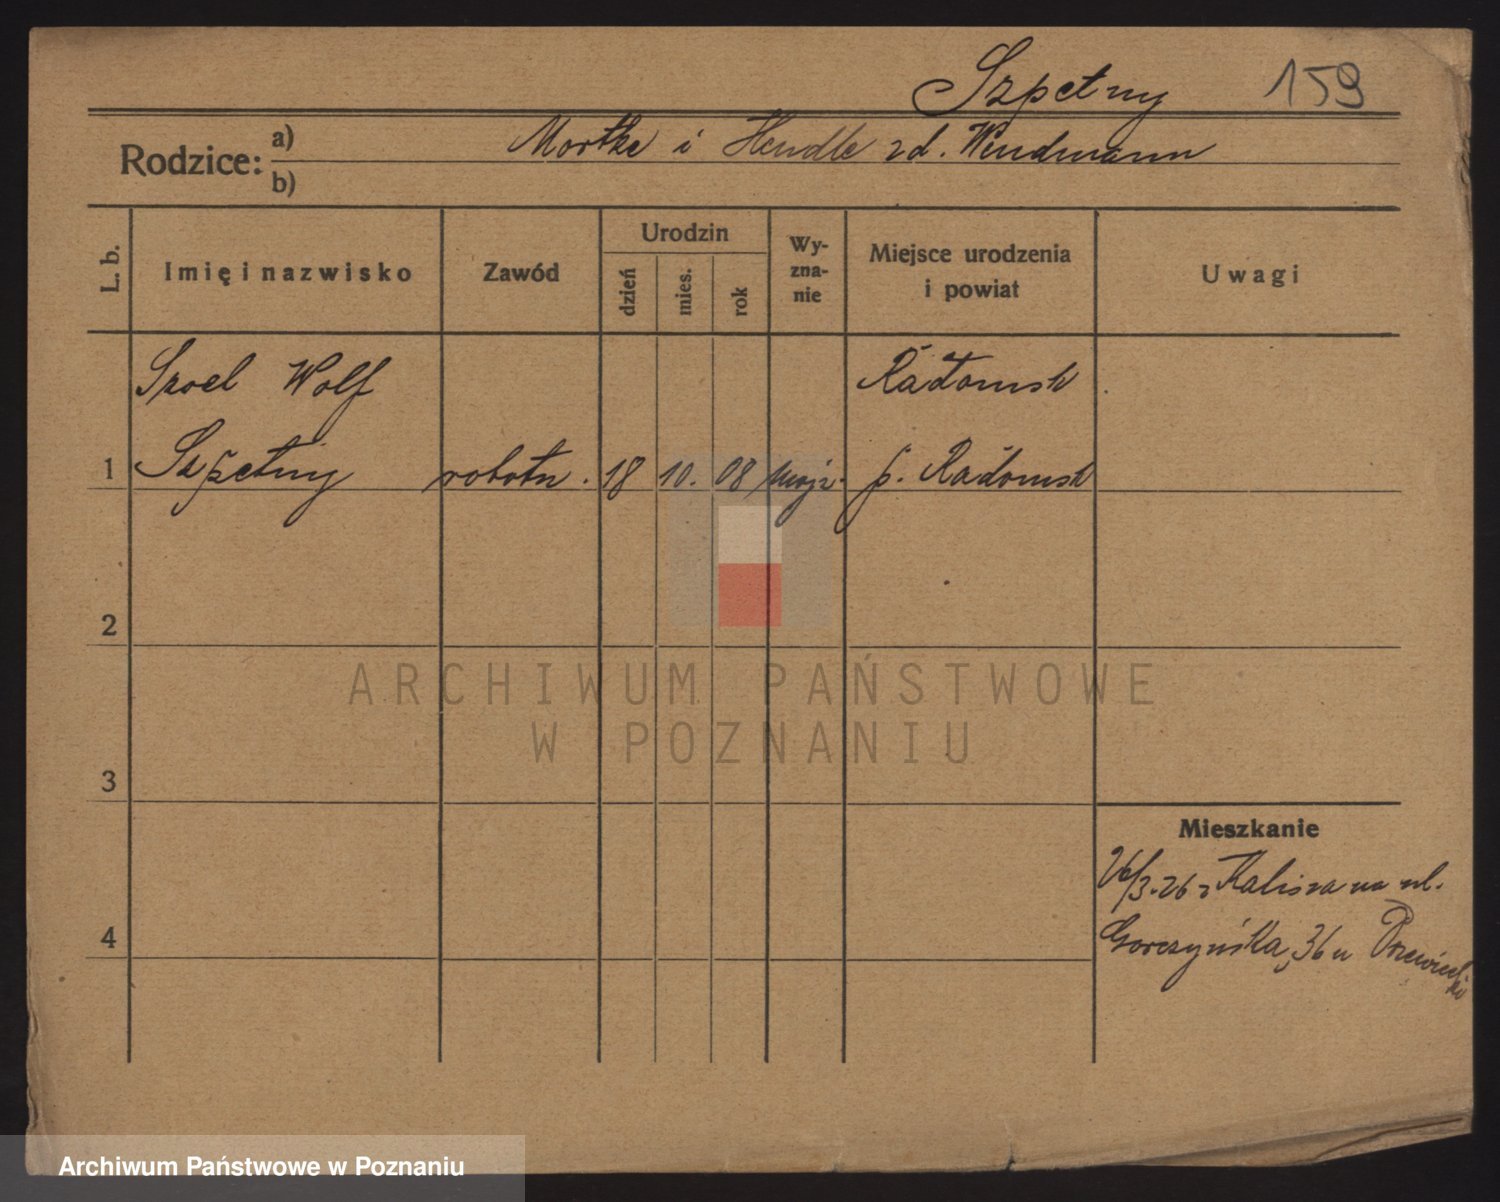 Szpetny 159
Rodzice: a) Mortke i Hendle zd. Wendmann
b)
L. b.
Imię i nazwisko
Zawód
Urodzin
dzień
mies.
rok
Wy-
zna-
nie
Miejsce urodzenia
i powiat
Uwagi
Wolf
Radomsk
1 Szpetny robotn. 18 10. 08 mojż. p. Radomsk
2
ARCHIWUM PAŃSTWOWE
W POZNANIU
3
Mieszkanie
26/3.26 z Kalisza na ul.
4
Gorczyńska, 36 u
Archiwum Państwowe w Poznaniu